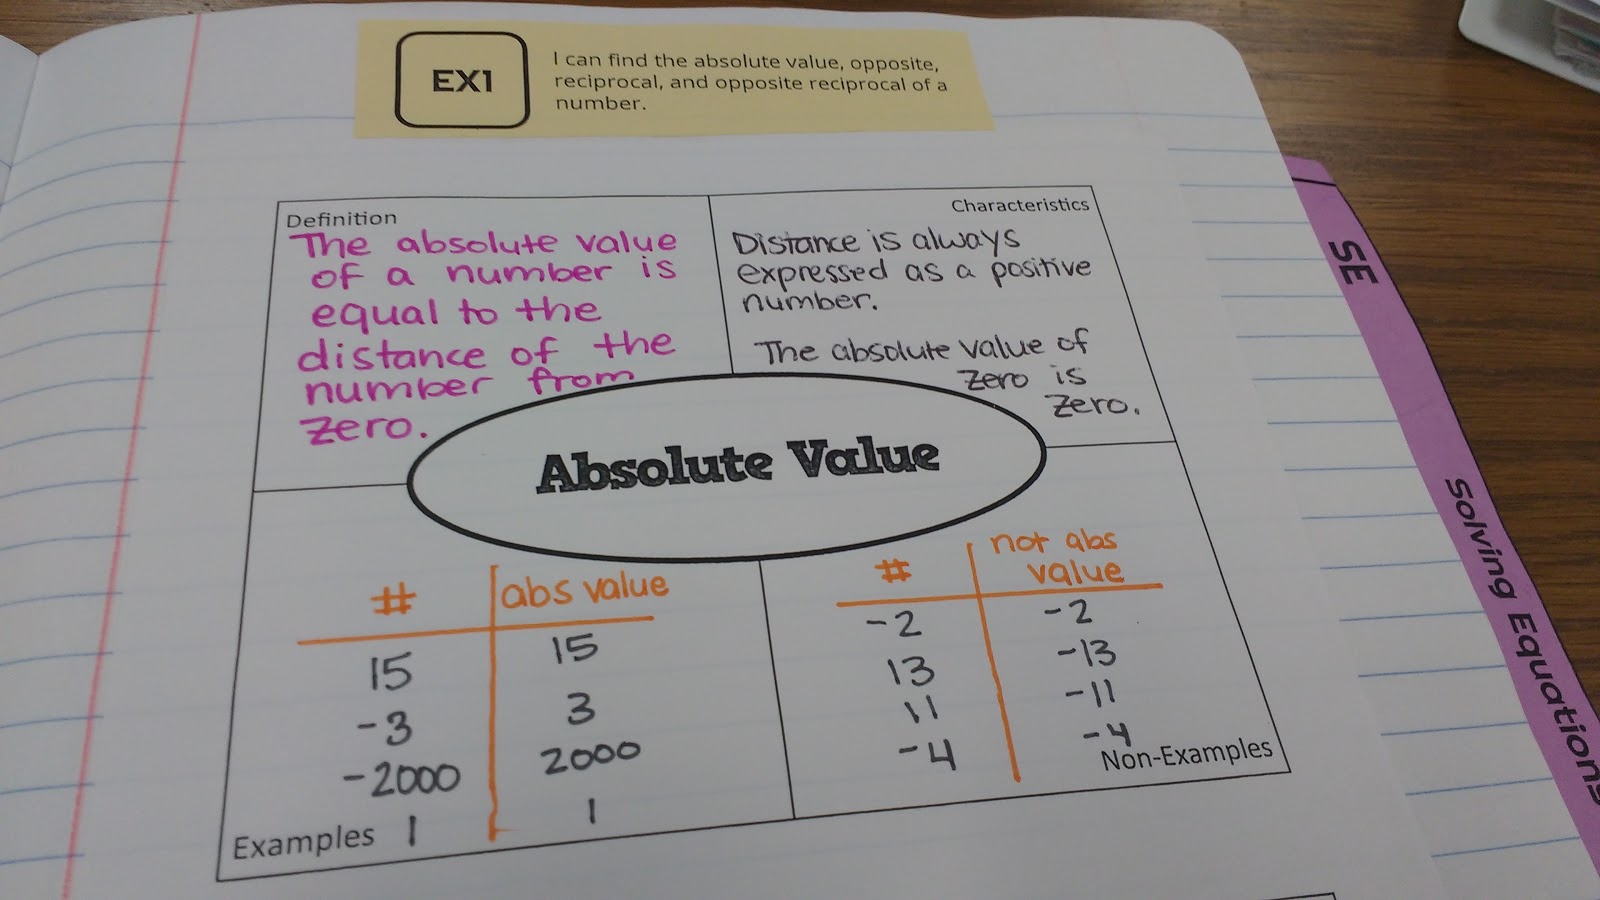 EX1
I can find the absolute value, opposite,
reciprocal, and opposite reciprocal of a
number.
Definition
The absolute value
of a number is
equal to the
distance of the
number from
zero.
Characteristics
Distance is always
expressed as a positive
number.
The absolute value of
zero is
zero.
Absolute Value
# abs value
15 15
-3 3
-2000 2000
1 1
Examples
# not abs
value
-2 -2
13 -13
11 -11
-4 -4
Non-Examples
SE
Solving Equations